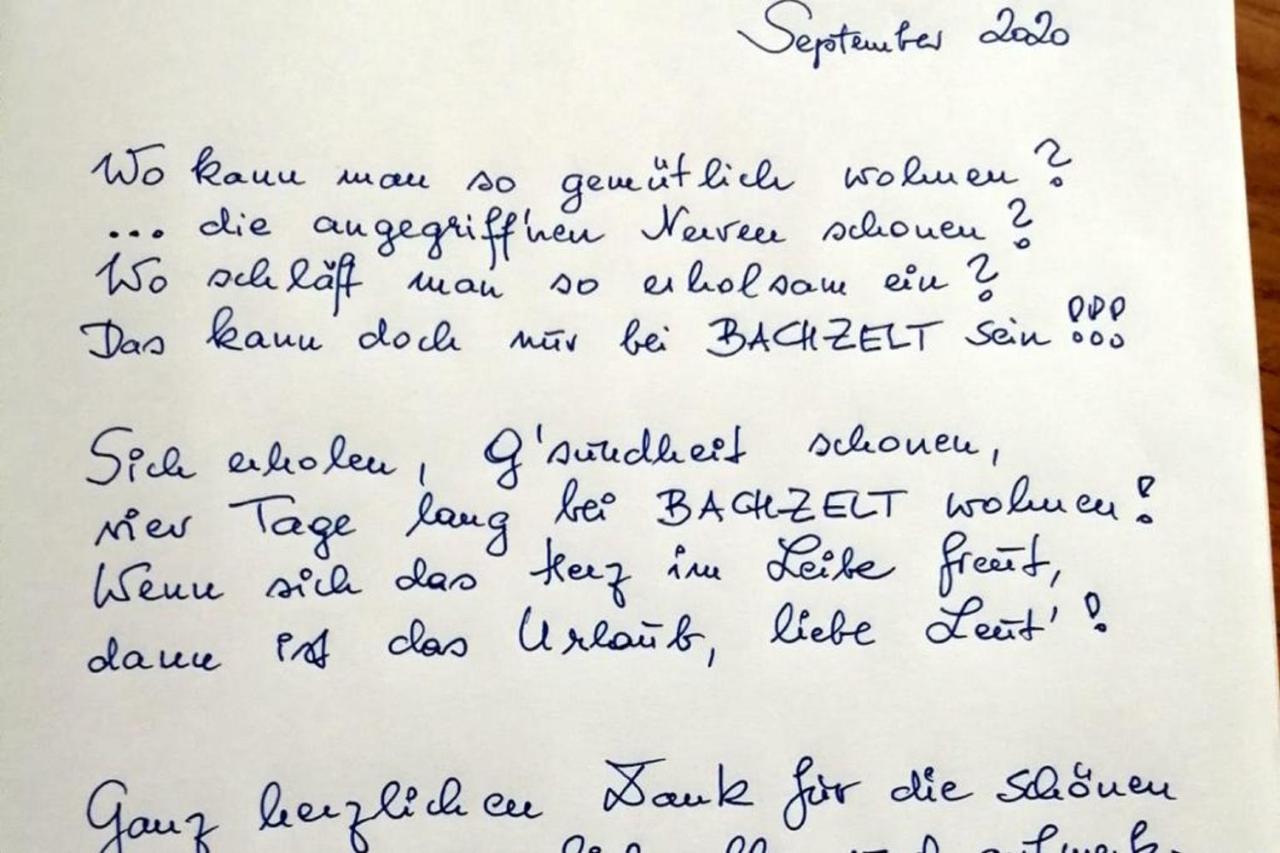 September 2020
Wo kann man so gemütlich wohnen?
... die angegriff'nen Nerven schonen?
Wo schläft man so erholsam ein?
Das kann doch nur bei BACHZELT sein!!!
Sich erholen, G'sundheit schonen,
vier Tage lang bei BACHZELT wohnen!
Wenn sich das Herz im Leibe freut,
dann ist das Urlaub, liebe Leut'!
Ganz herzlichen Dank für die schönen